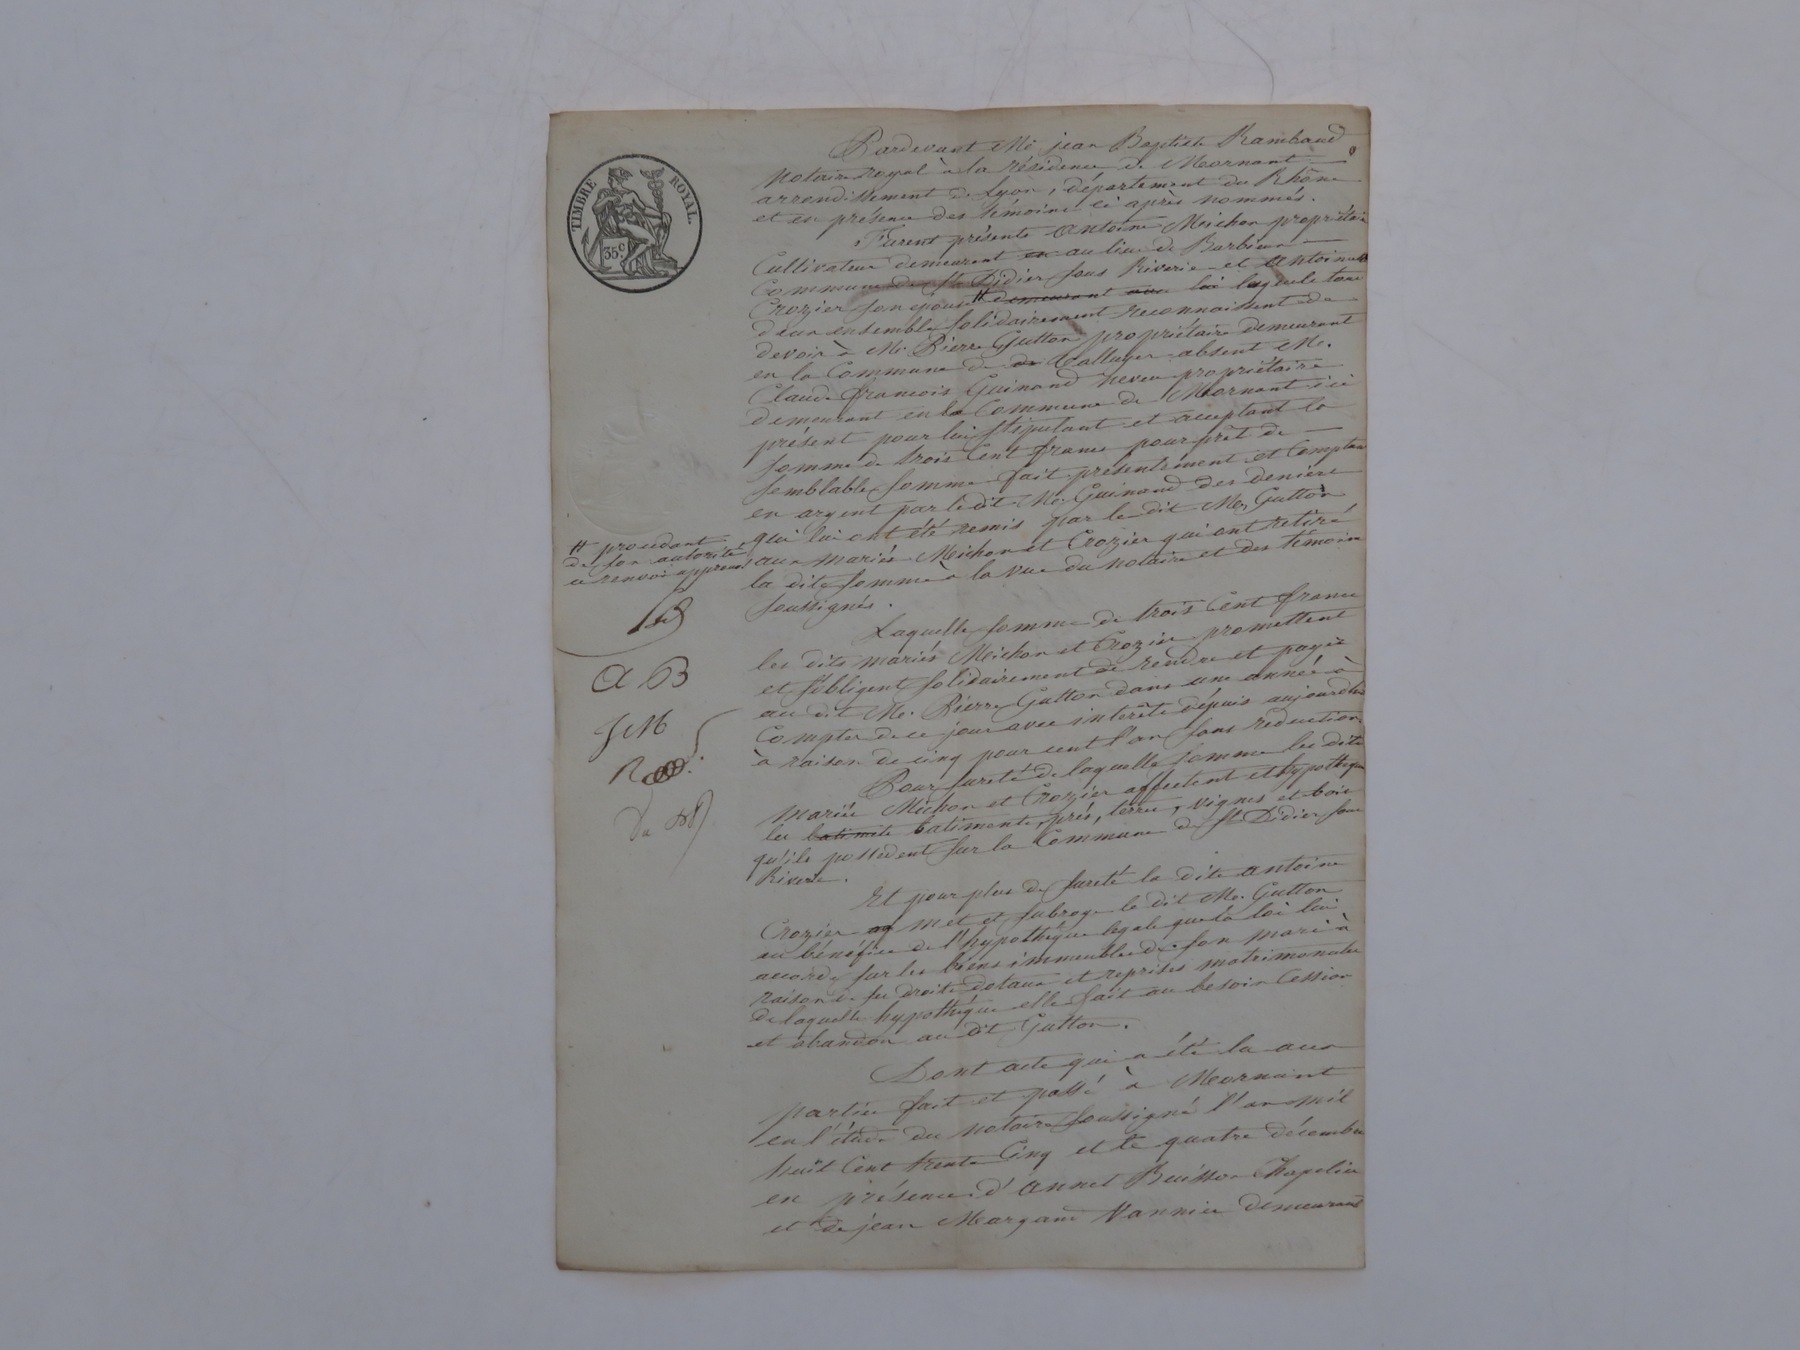 TIMBRE ROYAL
35c
Pardevant Me jean Baptiste Rambaud
Notaire royal à la résidence de Mornant
arrondissement de Lyon, département du Rhône
et en présence des témoins ci après nommés.
Furent présents Antoine Michon propriétaire
Cultivateur demeurant au lieu de Barbieux
Commune de St Didier sous Riverie et antoinette
Crozier son épouse # demeurant avec lui lesquels tous
deux ensemble solidairement reconnaissent de
devoir à Mr. Pierre Gutton propriétaire demeurant
en la Commune de absent Mr.
Claude françois Guinand neveu propriétaire
demeurant en la Commune de Mornant ici
présent pour lui stipulant et acceptant la
somme de trois Cent francs pour prêt de
semblable somme fait présentement et Comptant
en argent par le dit Mr. Guinand des deniers
qui lui ont été remis par le dit Mr. Gutton
aux mariés Michon et Crozier qui ont retiré
la dite somme à la vue du notaire et des témoins
soussignés.
# procédant
de son autorité
ce renvoi approuvé
A B
J M
Laquelle somme de trois Cent francs
les dits mariés Michon et Crozier promettent
et s'obligent solidairement de rendre et payer
au dit Mr. Pierre Gutton dans une année à
Compter de ce jour avec intérêts dépuis aujourd'hui
à raison de cinq pour cent l'an sans réduction
Pour sureté de laquelle somme les dits
mariés Michon et Crozier affectent et hypothèquent
les batiments batiments, prés, terres, vignes et bois
qu'ils possèdent sur la Commune de St Didier sous
Riverie.
Et pour plus de sureté la dite antoine
Crozier met et subroge le dit Mr. Gutton
au bénéfice de l'hypothèque légale que la loi lui
accorde sur les biens immeubles de son mari à
raison de ses droits dotaux et reprises matrimoniales
de laquelle hypothèque elle fait au besoin Cession
et abandon au dit Gutton.
Dont acte qui a été lu aux
parties fait et passé à Mornant
en l'étude du notaire soussigné l'an mil
huit Cent trente Cinq et le quatre décembre
en présence d'Annet Buisson Chapelier
et de jean Margand Vannier demeurant